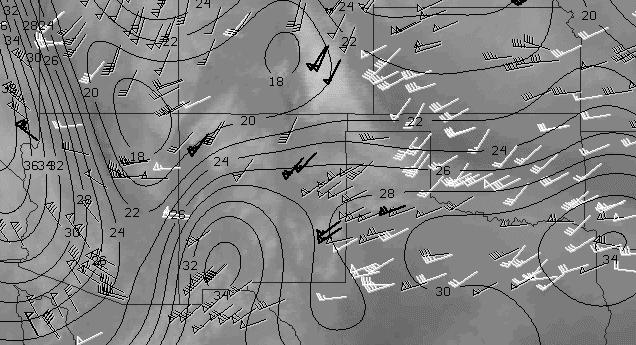 32 24 24
20
2824
34 22 22
30
26
18
20
20 22
24
18 24
363432 26
28 28
22 26
30 24
26 34
32
34 30